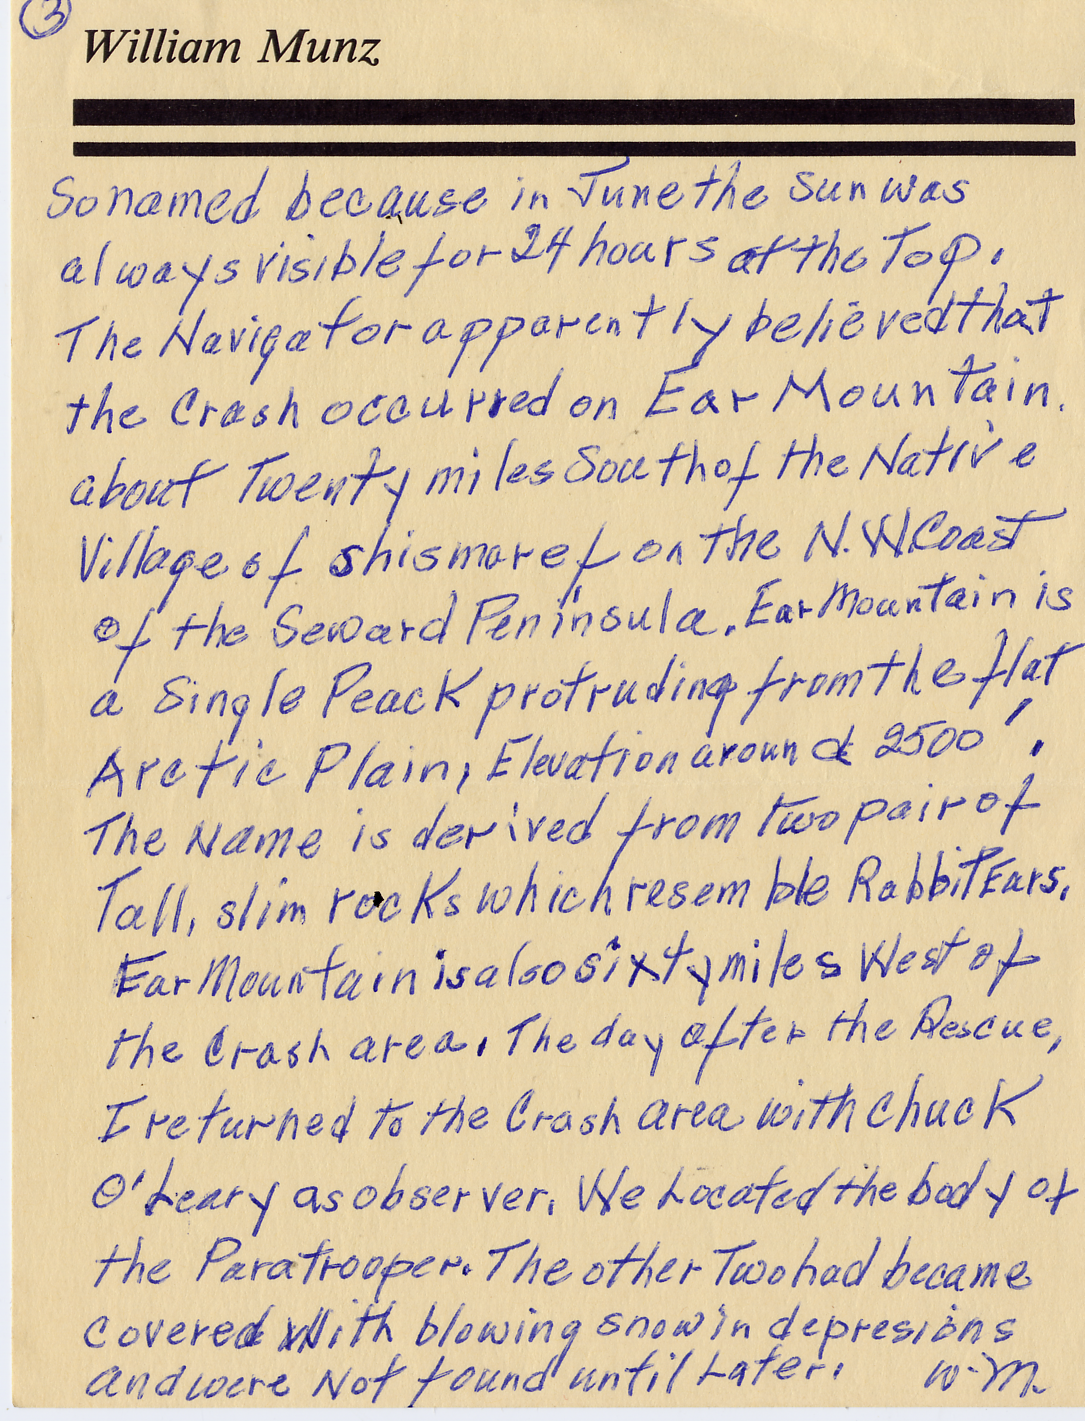 3
William Munz
So named because in June the sun was
always visible for 24 hours at the Top.
The Navigator apparently believed that
the Crash occurred on Ear Mountain.
about Twenty miles South of the Native
Village of Shismaref on the N.W Coast
of the Seward Peninsula. Ear Mountain is
a Single Peack protruding from the flat
Arctic Plain, Elevation around 2500'.
The Name is derived from two pair of
Tall, slim rocks which resemble Rabbit Ears.
Ear Mountain is also sixty miles West of
the Crash area. The day after the Rescue,
I returned to the Crash area with Chuck
O'Leary as observer. We Located the body of
the Paratrooper. The other Two had became
covered With blowing snow in depresions
and were Not found until Later. W.M.